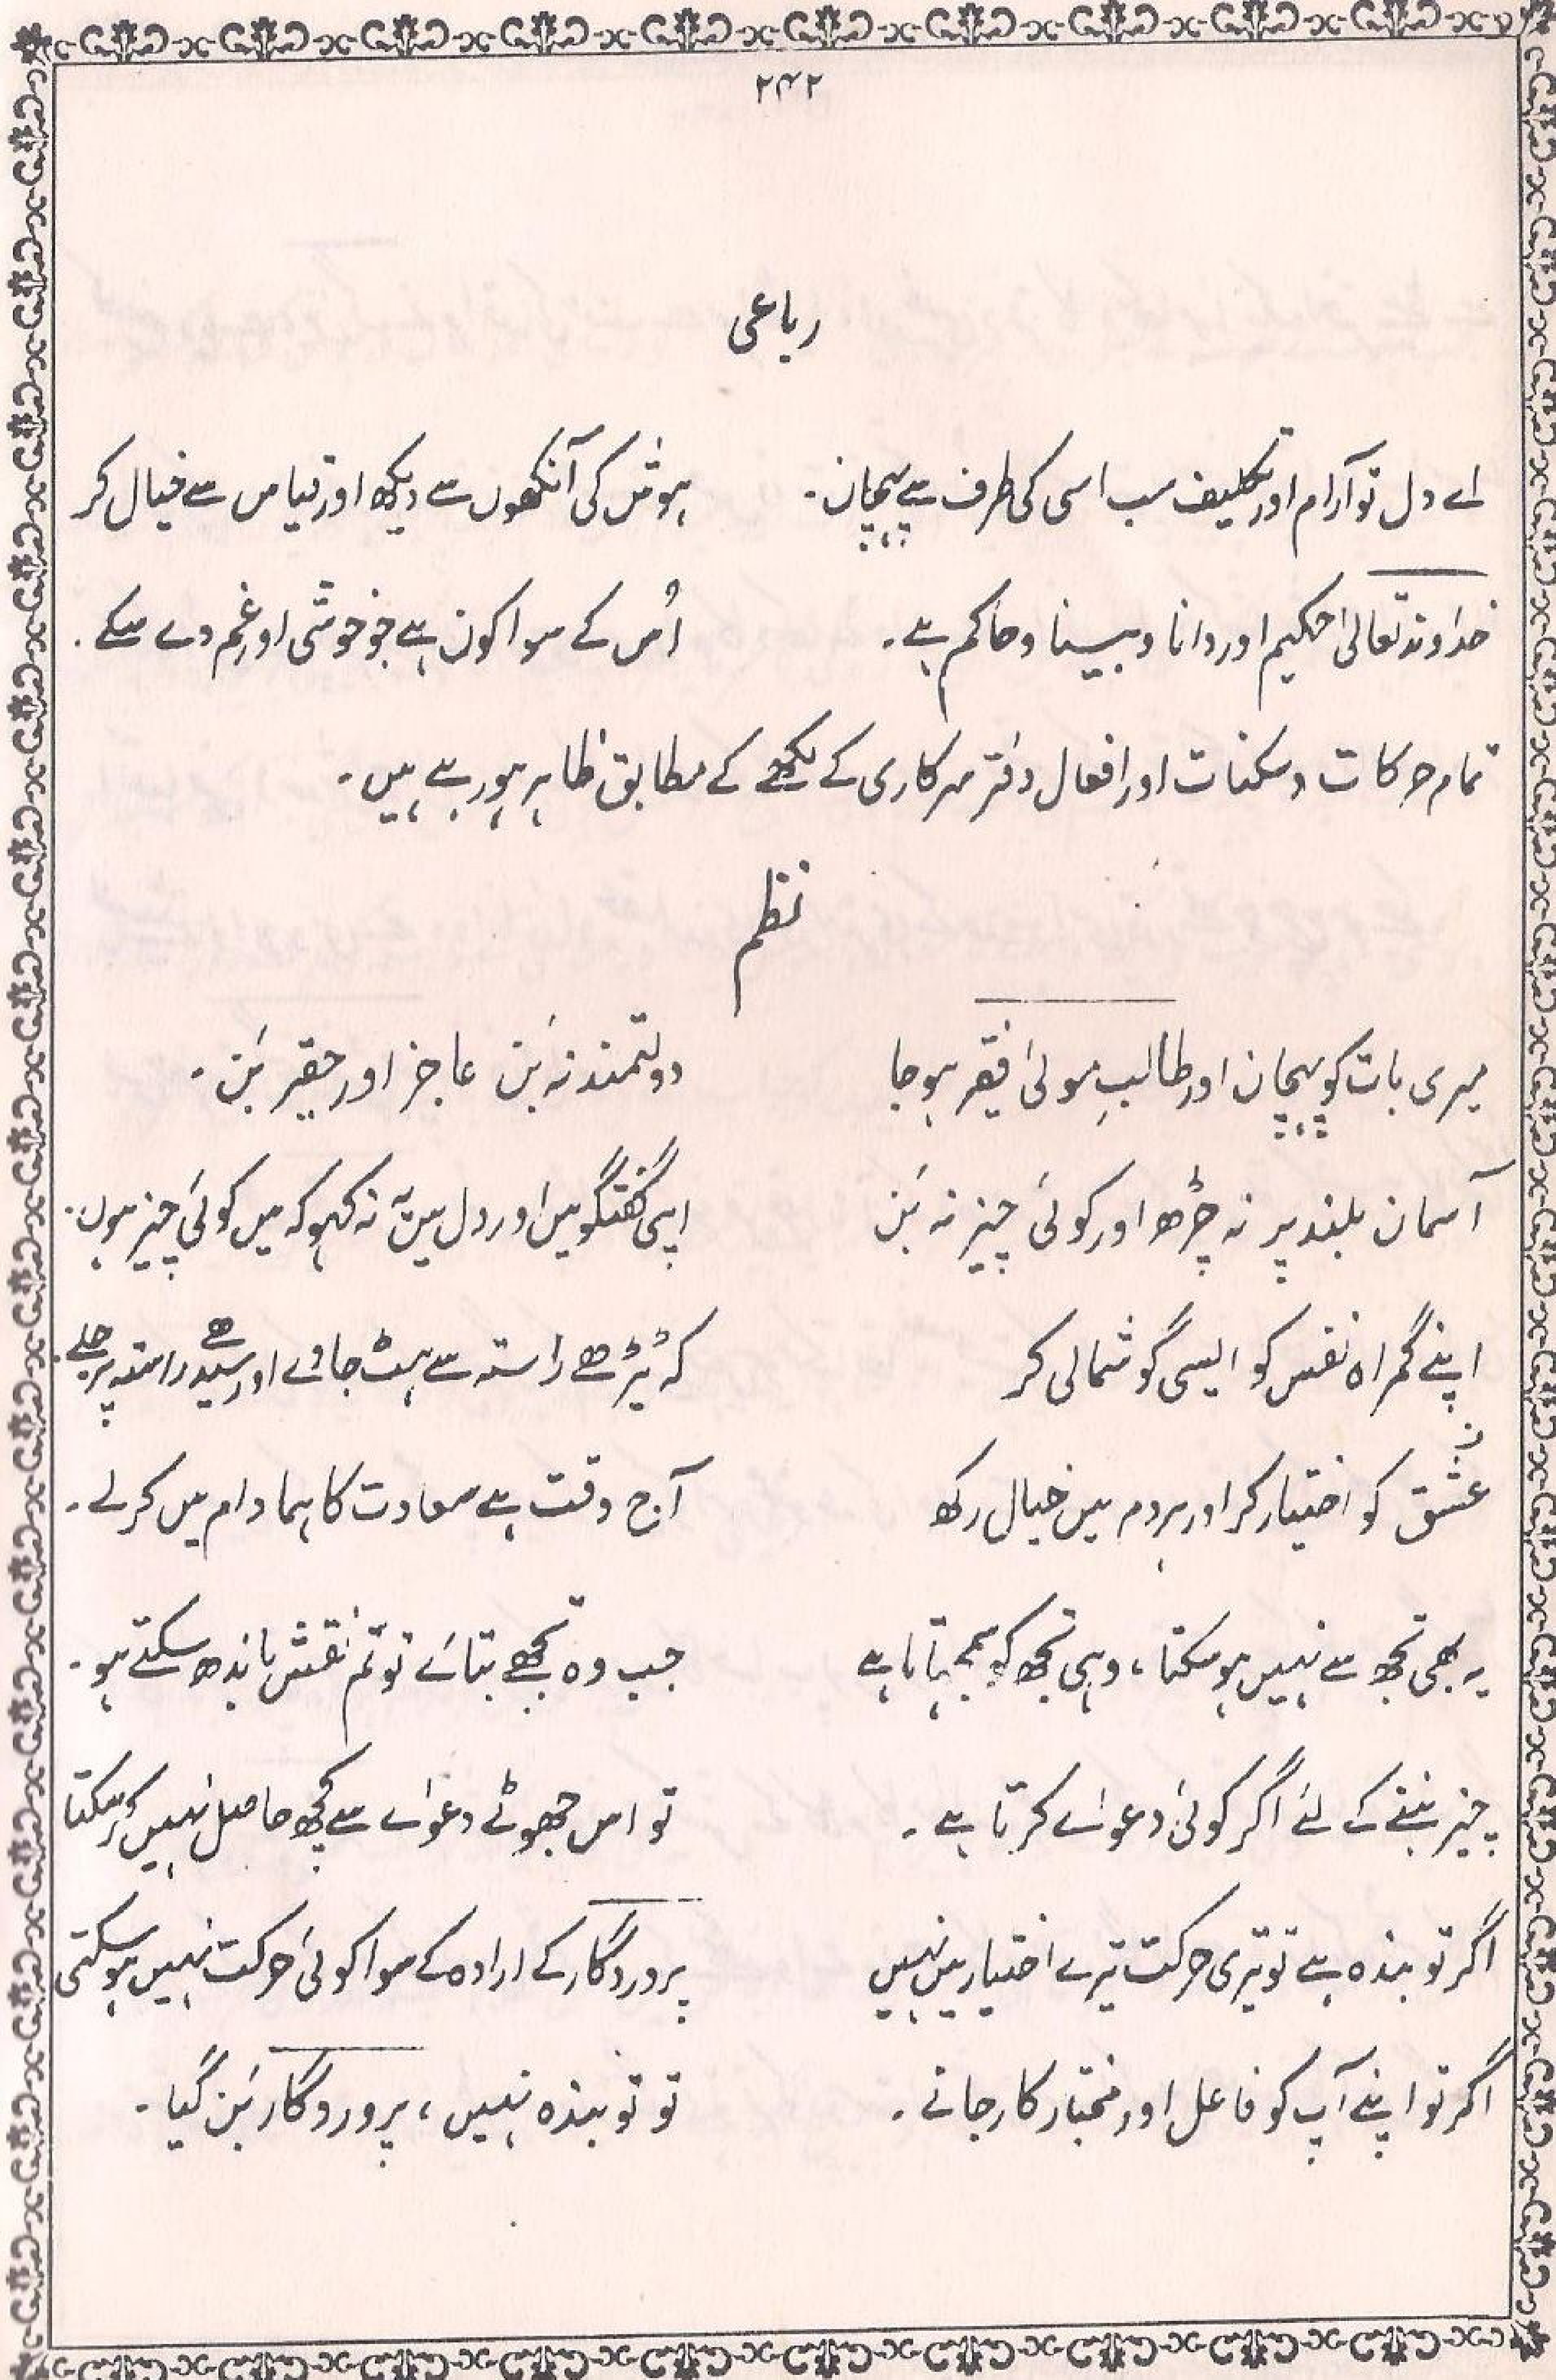 ۲۴۲
رباعی
اے دل تو آرام اور تکلیف سب اسی کی طرف سے پہچان۔ ہوش کی آنکھوں سے دیکھ اور قیاس سے خیال کر
خداوند تعالیٰ حکیم اور دانا و بینا و حاکم ہے۔ اُس کے سوا کون ہے جو خوشی اور غم دے سکے۔
تمام حرکات و سکنات اور افعال دفتر سرکاری کے لکھے کے مطابق ظاہر ہو رہے ہیں۔
نظم
میری بات کو پہچان اور طالبِ مولیٰ فقیر ہو جا دولتمند نہ بَن عاجز اور حقیر بَن۔
آسمان بلند پر نہ چڑھ اور کوئی چیز نہ بَن اپنی گفتگو میں اور دل میں نہ کہو کہ میں کوئی چیز ہوں۔
اپنے گمراہ نفس کو ایسی گوشمالی کر کہ ٹیڑھے راستہ سے ہٹ جاوے اور سیدھے راستہ پر چلے۔
عشق کو اختیار کر اور ہر دم میں خیال رکھ آج وقت ہے سعادت کا ہما دام میں کر لے۔
یہ بھی تجھ سے نہیں ہو سکتا، وہی تجھ کو سمجہاتا ہے جب وہ تجھے بتائے تو تم نقش باندھ سکتے ہو۔
چیز بننے کے لئے اگر کوئی دعوٰے کرتا ہے۔ تو اس جھوٹے دعوٰے سے کچھ حاصل نہیں کر سکتا
اگر تو بندہ ہے تو تیری حرکت تیرے اختیار میں نہیں پروردگار کے ارادہ کے سوا کوئی حرکت نہیں ہو سکتی
اگر تو اپنے آپ کو فاعل اور مختار کار جانے۔ تو تو بندہ نہیں، پروردگار بَن گیا۔